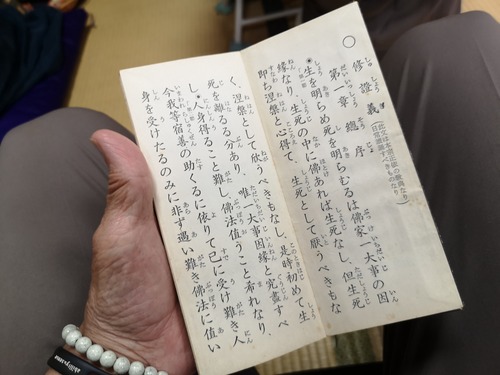 ○ 修證義
第一章 總序
生を明らめ死を明らむるは佛家一大事の因
緣なり、生死の中に佛あれば生死なし、但生死
即ち涅槃と心得て、生死として厭うべきもな
く、涅槃として欣うべきもなし、是時初めて生
死を離るる分あり、唯一大事因緣と究盡すべ
し。人身得ること難し、佛法値うこと希れなり、
今我等宿善の助くるに依りて已に受け難き人
身を受けたるのみに非ず遇い難き佛法に値い